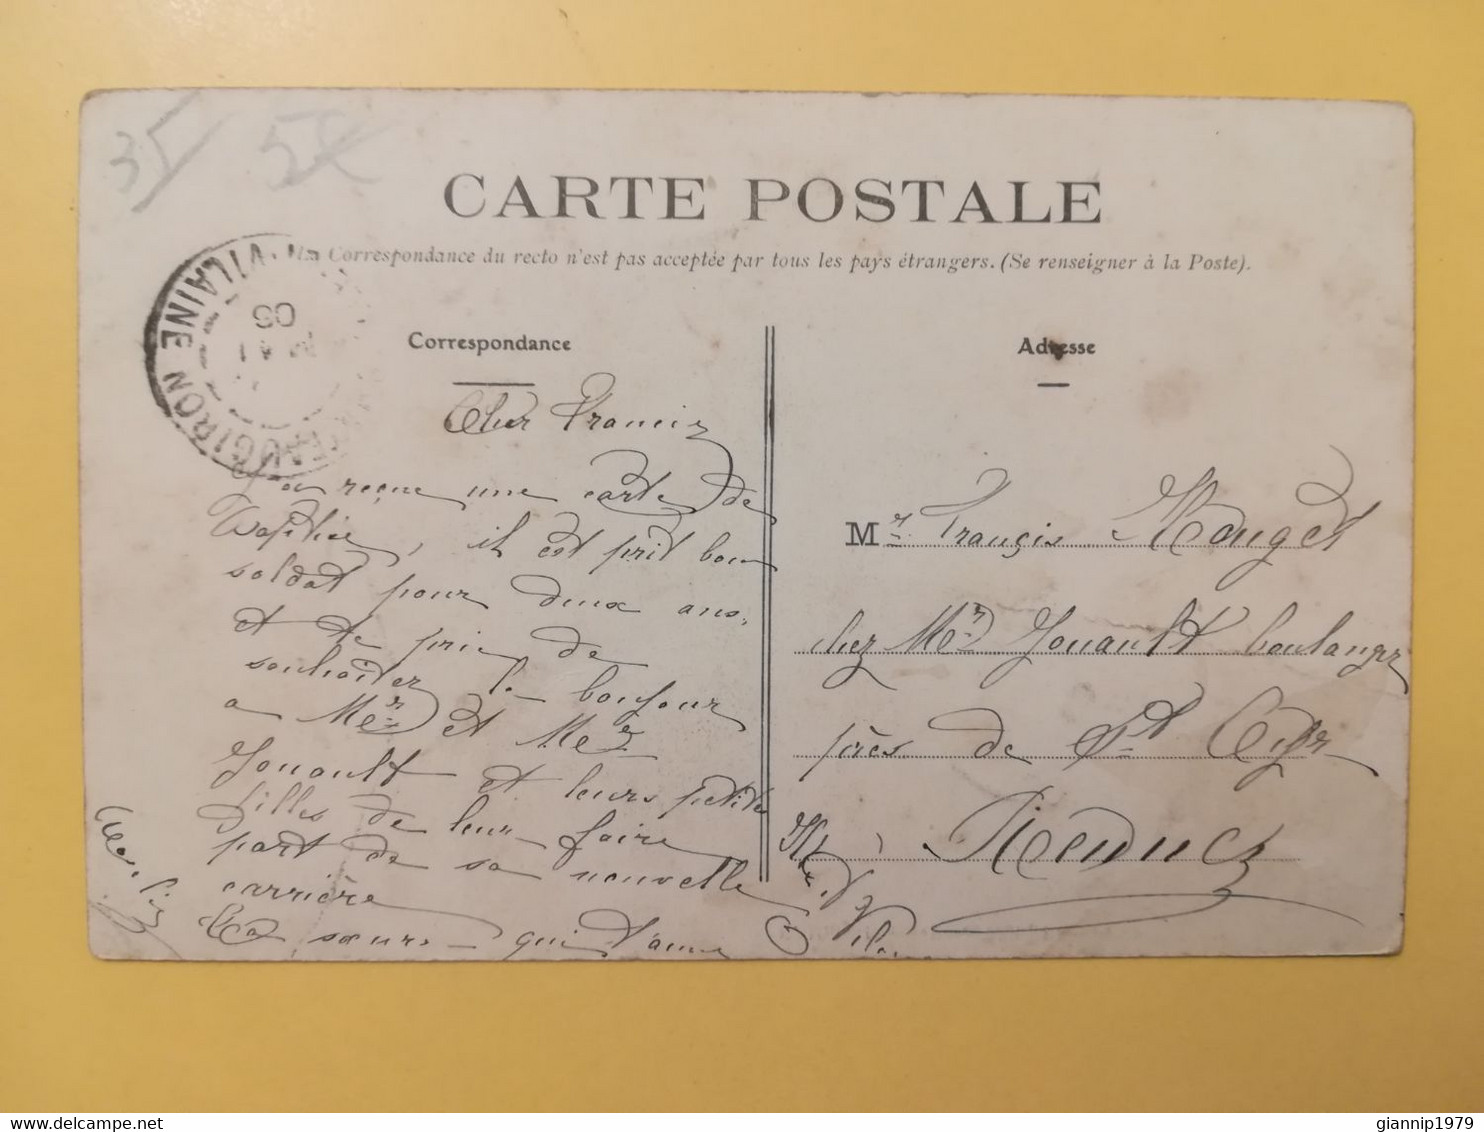 35 5x
CARTE POSTALE
La Correspondance du recto n'est pas acceptée par tous les pays étrangers. (Se renseigner à la Poste).
CHATEAUGIRON ILLE-ET-VILAINE
MAI
05
Correspondance
Cher Francis
J'ai reçue une carte de
Baptiste, il est prit bon
soldat pour deux ans,
et te prie de
souhaiter le bonjour
a Mer et Me
Jouault et leurs petites
filles de leur faire
part de sa nouvelle
carrière
Ta sœur qui t'aime
Adresse
Mr François Mouget
chez Mer Jouault boulanger
près de St Cyr
Rennes
Ille et Vila
giannip1979